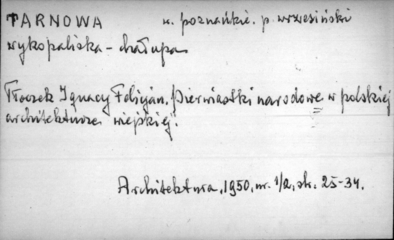 TARNOWA w. poznańkie. p. wrzesiński
wykopaliska - chałupa
Tłoczek Ignacy Felicjan. Pierwiastki narodowe w polskiej
architekturze wiejskiej.
Architektura, 1950, nr. 1/2, str. 25-34.